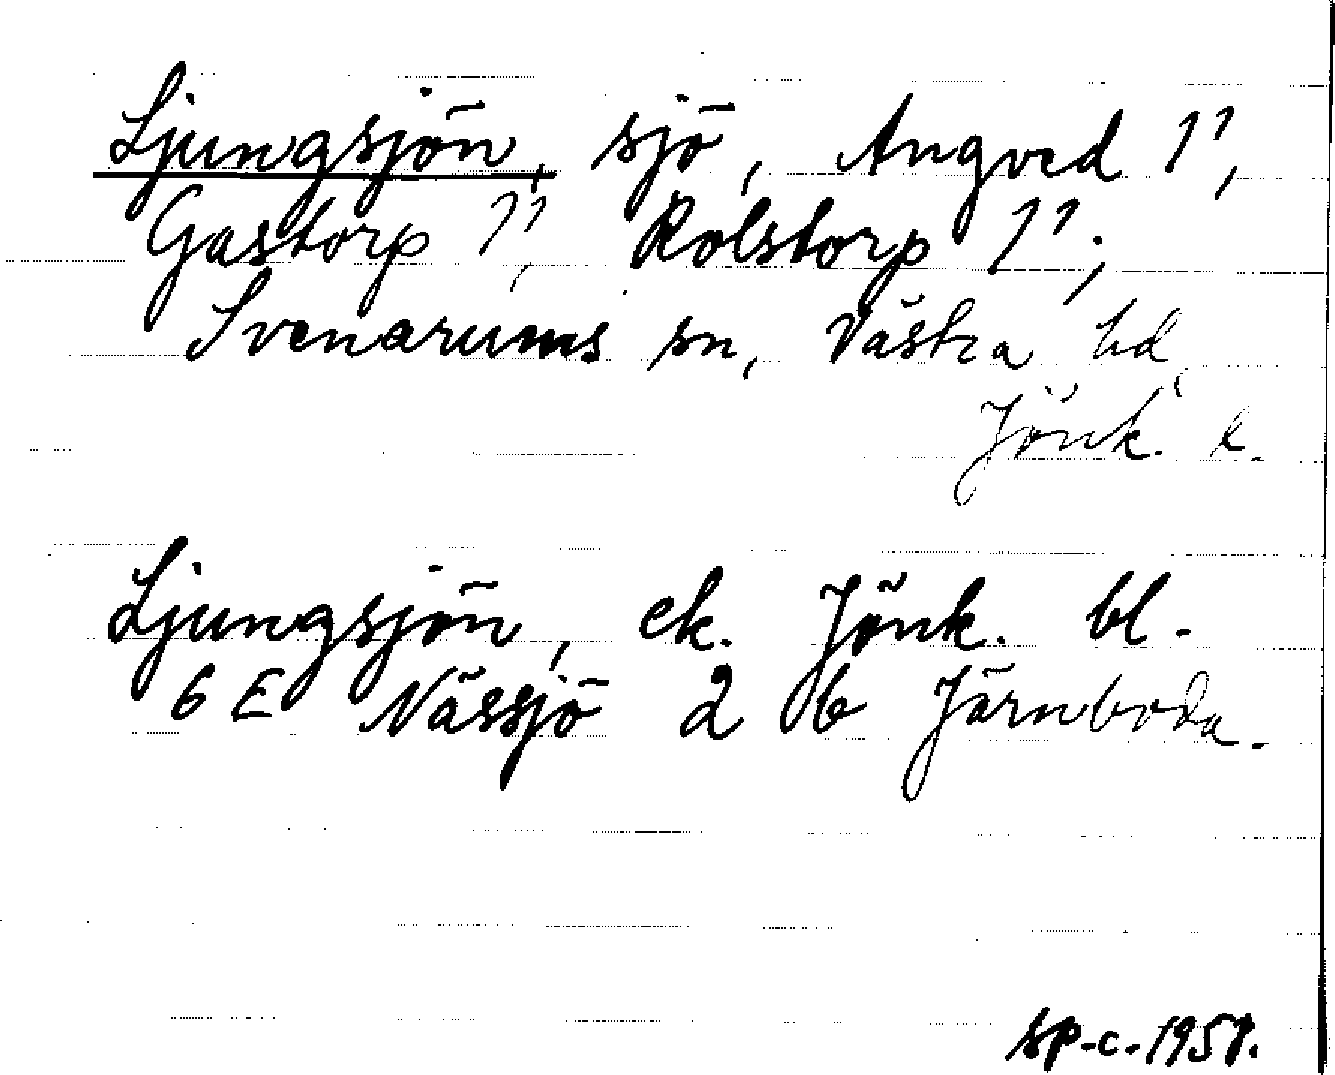 Ljungsjön, sjö, Angved 1¹,
Gastorp 1¹, Rolstorp 1¹;
Svenarums sn, Västra hd,
Jönk. l.
Ljungsjön, ek. Jönk. bl.
6 E Nässjö 2 b Järnboda.
sp-c.-1957.